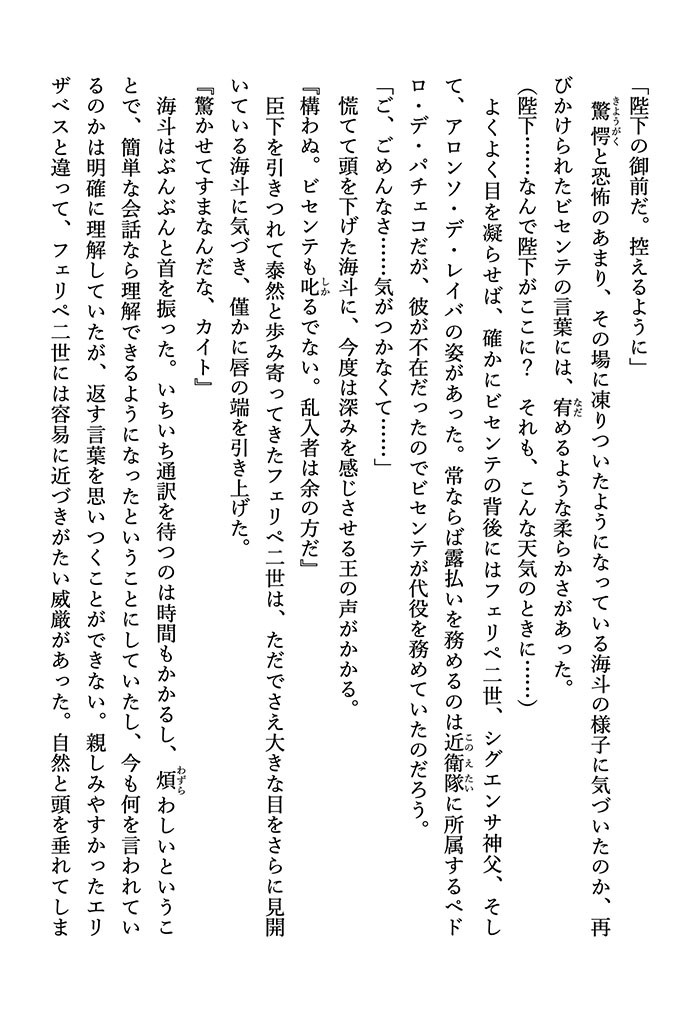 「陛下の御前だ。控えるように」
驚愕と恐怖のあまり、その場に凍りついたようになっている海斗の様子に気づいたのか、再
びかけられたビセンテの言葉には、宥めるような柔らかさがあった。
(陛下……なんで陛下がここに？　それも、こんな天気のときに……)
よくよく目を凝らせば、確かにビセンテの背後にはフェリペ二世、シグエンサ神父、そし
て、アロンソ・デ・レイバの姿があった。常ならば露払いを務めるのは近衛隊に所属するペド
ロ・デ・パチェコだが、彼が不在だったのでビセンテが代役を務めていたのだろう。
「ご、ごめんなさ……気がつかなくて……」
慌てて頭を下げた海斗に、今度は深みを感じさせる王の声がかかる。
『構わぬ。ビセンテも叱るでない。乱入者は余の方だ』
臣下を引きつれて泰然と歩み寄ってきたフェリペ二世は、ただでさえ大きな目をさらに見開
いている海斗に気づき、僅かに唇の端を引き上げた。
『驚かせてすまなんだな、カイト』
海斗はぶんぶんと首を振った。いちいち通訳を待つのは時間もかかるし、煩わしいというこ
とで、簡単な会話なら理解できるようになったということにしていたし、今も何を言われてい
るのかは明確に理解していたが、返す言葉を思いつくことができない。親しみやすかったエリ
ザベスと違って、フェリペ二世には容易に近づきがたい威厳があった。自然と頭を垂れてしま